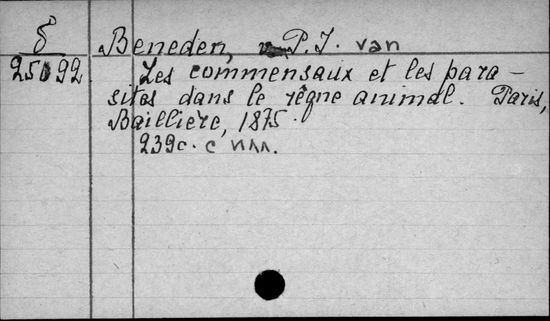 δ Beneden, P.J. van
25092 Les commensaux et les para-
sites dans le règne animal. Paris,
Baillière, 1875.
239c. с илл.